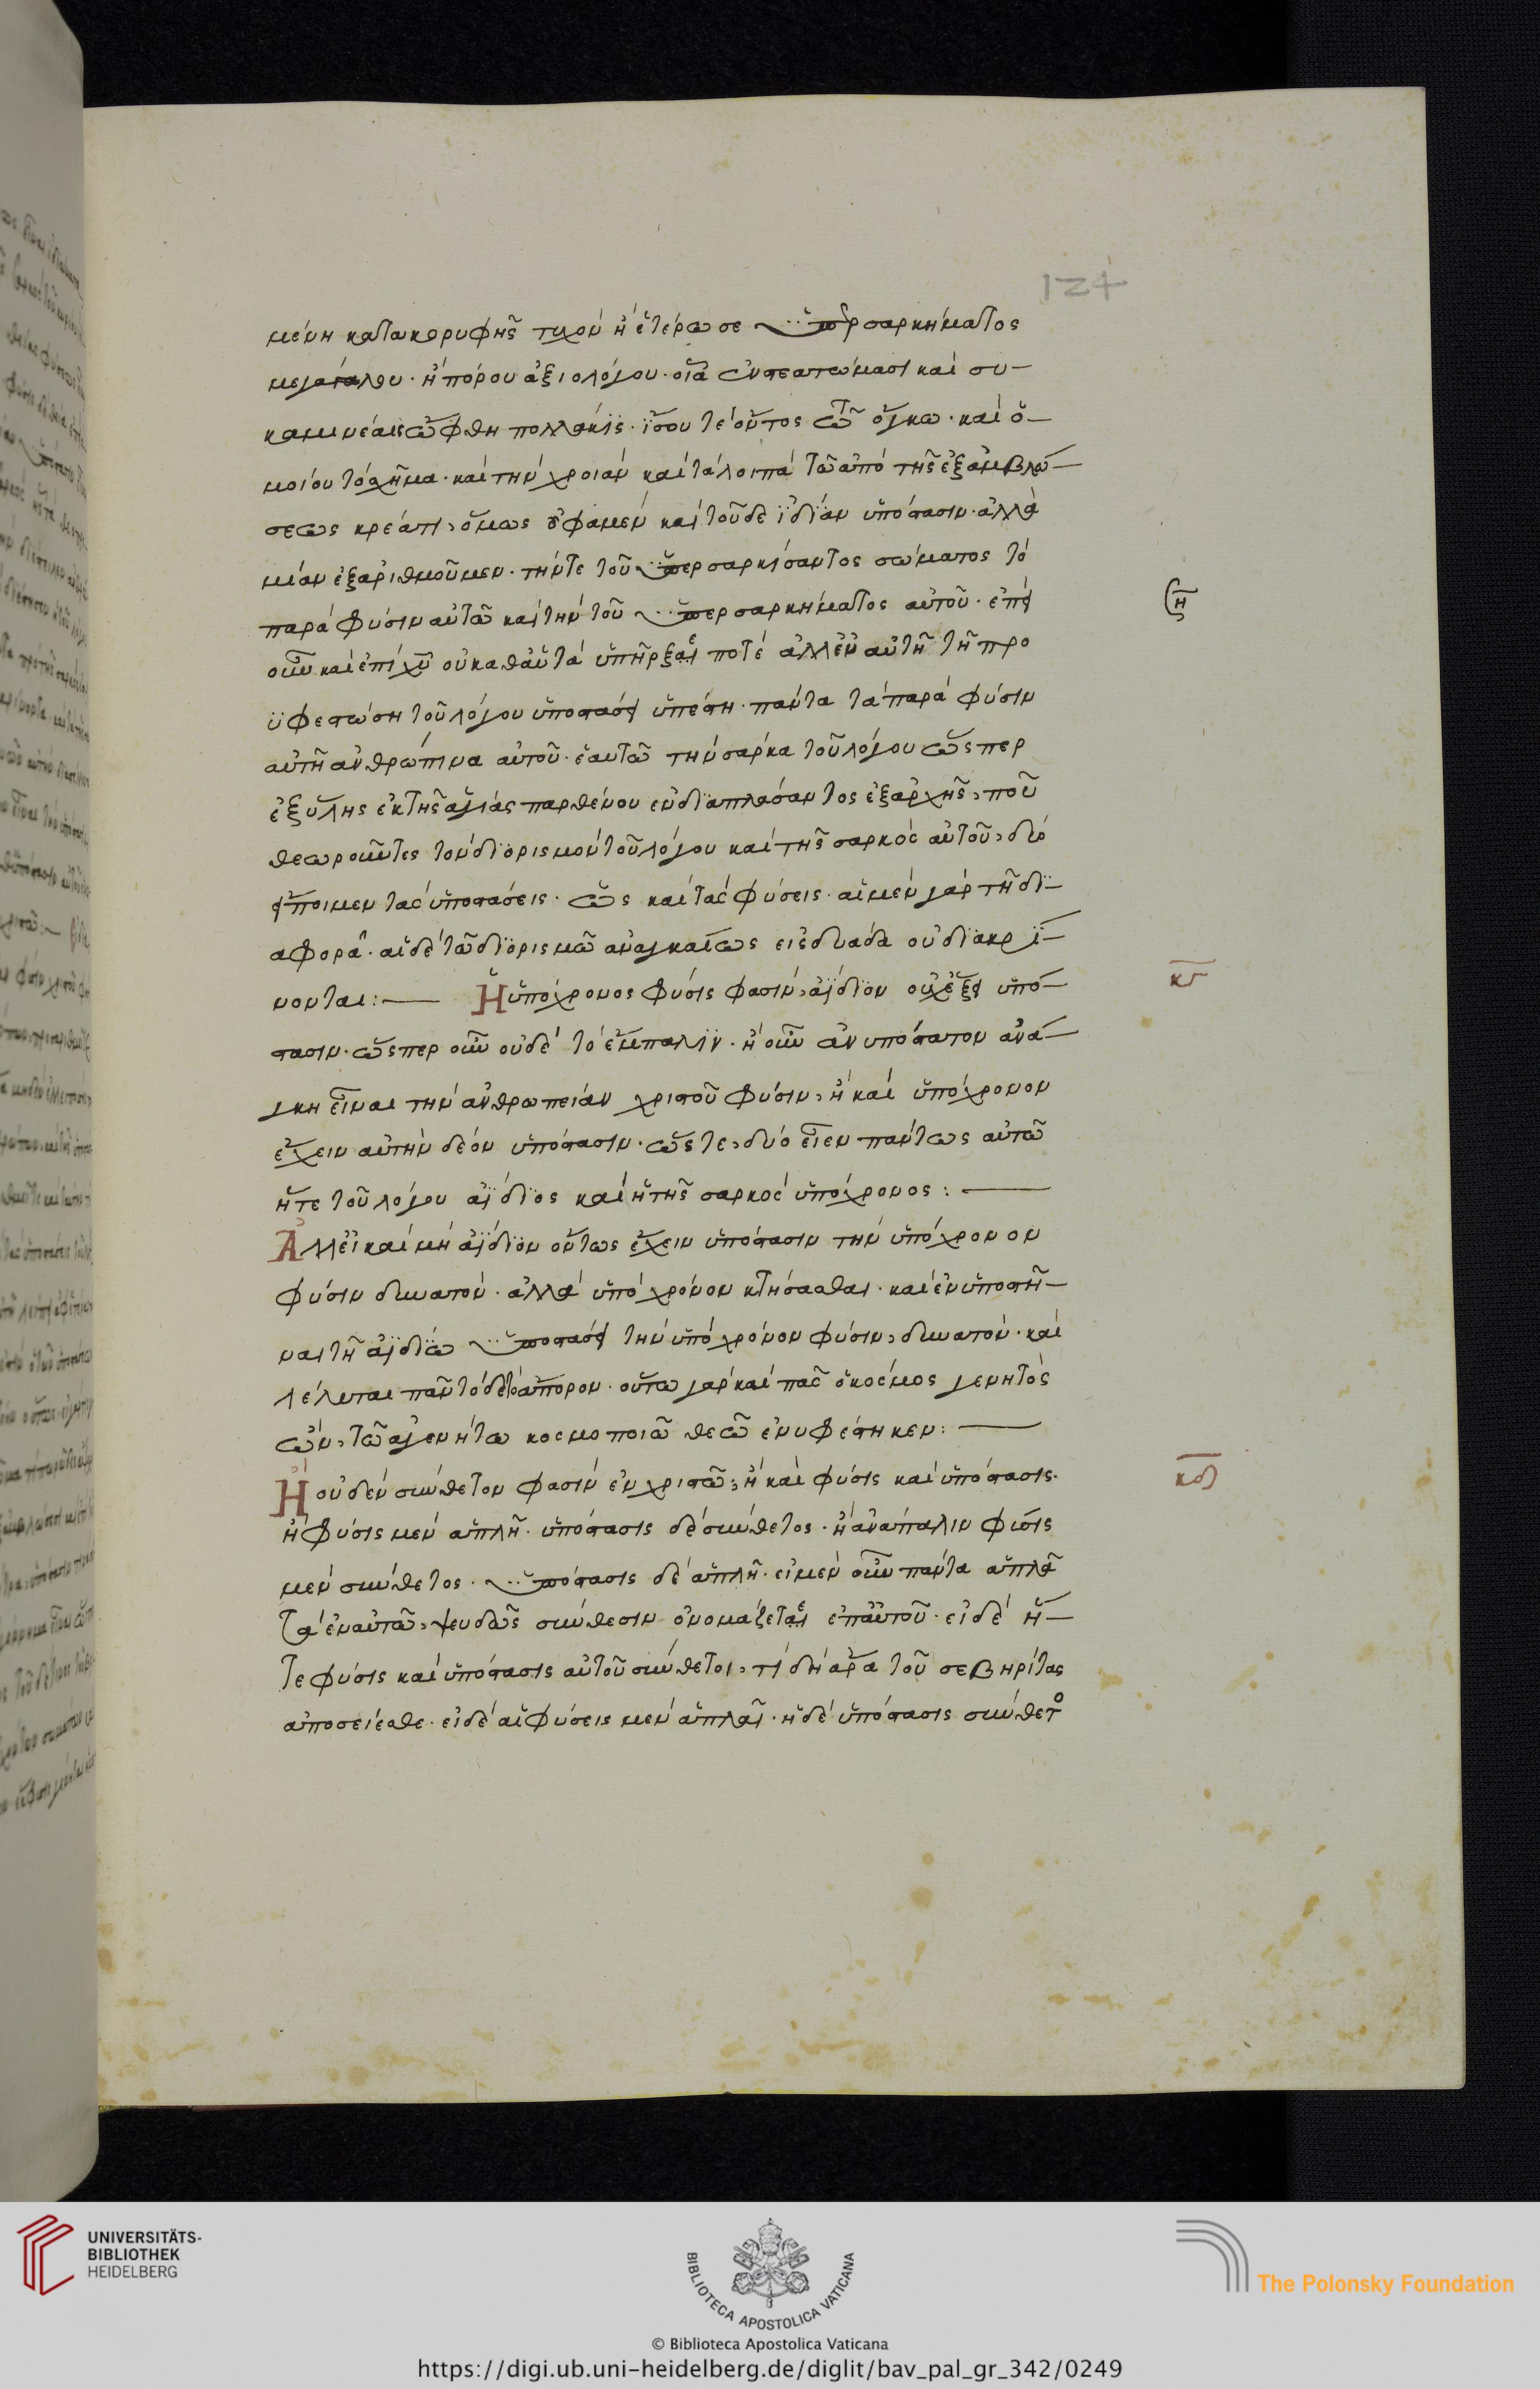 124
μένη κατακορυφῆς τυχὸν ἢ ἑτέρωσε ὑπερσαρκήματος
μεγάλου· ἢ πόρου ἀξιολόγου· οἷα ἐν στεατώμασι καὶ συ-
ὤφθη πολλάκις· ἴσου τε ὄντος τῶ ὄγκω· καὶ ὁ-
μοίου τὸ σχῆμα· καὶ τὴν χροιὰν καὶ τὰ λοιπὰ τῶ ἀπὸ τῆς ἐξαμβλώ-
σεως κρέατι, ὅμως οὔ φαμεν καὶ τοῦδε ἰδίαν ὑπόστασιν· ἀλλὰ
μίαν ἐξαριθμοῦμεν· τήν τε τοῦ ὑπερσαρκίσαντος σώματος τὸ
παρὰ φύσιν αὐτῶ καὶ τὴν τοῦ ὑπερσαρκήματος αὐτοῦ· ἐπεὶ
οὖν καὶ ἐπὶ χυ οὐ καθ' αὑτὰ ὑπῆρξαί ποτε ἀλλ' ἐν αὐτῆ τῆ προ
ϋφεστώση τοῦ λόγου ὑποστάσει ὑπέστη· πάντα τὰ παρὰ φύσιν
αὐτῆ ἀνθρώπινα αὐτοῦ· ἑαυτῶ τὴν σάρκα τοῦ λόγου ὥσπερ
ἐξ ὕλης ἐκ τῆς ἁγίας παρθένου ἐνδιαπλάσαντος ἐξ ἀρχῆς, ποῦ
θεωροῦντες τὸν διορισμὸν τοῦ λόγου καὶ τῆς σαρκὸς αὐτοῦ, δύο
εἴποιμεν τὰς ὑποστάσεις· ὡς καὶ τὰς φύσεις· αἱ μὲν γὰρ τῆ δι-
αφορᾶ· αἱ δὲ τῶ διορισμῶ ἀναγκαίως εἰς δυάδα οὐ διακρί-
νονται:— Ἡ ὑπόχρονος φύσις φασίν, ἀΐδιον οὐχ ἕξει ὑπό-
κγ
στασιν· ὥσπερ οὖν οὐδὲ τὸ ἔμπαλιν· ἢ οὖν ἀνυπόστατον ἀνά-
γκη εἶναι τὴν ἀνθρωπείαν χριστοῦ φύσιν, ἢ καὶ ὑπόχρονον
ἔχειν αὐτὴν δέον ὑπόστασιν· ὥστε, δύο εἶεν πάντως αὐτῶ
ἥ τε τοῦ λόγου ἀΐδιος καὶ ἡ τῆς σαρκὸς ὑπόχρονος:—
Ἀλλ' εἰ καὶ μὴ ἀΐδιον ὄντως ἔχειν ὑπόστασιν τὴν ὑπόχρονον
φύσιν δυνατόν· ἀλλὰ ὑπὸ χρόνον κτήσασθαι· καὶ ἐνυποστῆ-
ναι τῆ ἀϊδίω ὑποστάσει τὴν ὑπὸ χρόνον φύσιν, δυνατόν· καὶ
λέλυται πᾶν τόδε τὸ ἄπορον· οὕτω γὰρ καὶ πᾶς ὁ κόσμος γενητὸς
ὤν, τῶ ἀγενήτω κοσμοποιῶ θεῶ ἐνυφέστηκεν:—
Ἢ οὐδὲν σύνθετον φασὶν ἐν χριστῶ, ἢ καὶ φύσις καὶ ὑπόστασις·
κδ
ἢ φύσις μὲν ἁπλῆ· ὑπόστασις δὲ σύνθετος· ἢ ἀνάπαλιν φύσις
μὲν σύνθετος· ὑπόστασις δὲ ἁπλῆ· εἰ μὲν οὖν πάντα ἁπλᾶ
τὰ ἐν αὐτῶ, ψευδῶς σύνθεσιν ὀνομάζεται ἐπ' αὐτοῦ· εἰ δὲ ἥ-
τε φύσις καὶ ὑπόστασις αὐτοῦ σύνθετοι, τί δὴ ἄρα τοῦ σεβηρίτας
ἀποσείεσθε· εἰ δὲ αἱ φύσεις μὲν ἁπλαῖ· ἡ δὲ ὑπόστασις σύνθετο
UNIVERSITÄTS-
BIBLIOTHEK
HEIDELBERG
BIBLIOTECA APOSTOLICA VATICANA
The Polonsky Foundation
© Biblioteca Apostolica Vaticana
https://digi.ub.uni-heidelberg.de/diglit/bav_pal_gr_342/0249